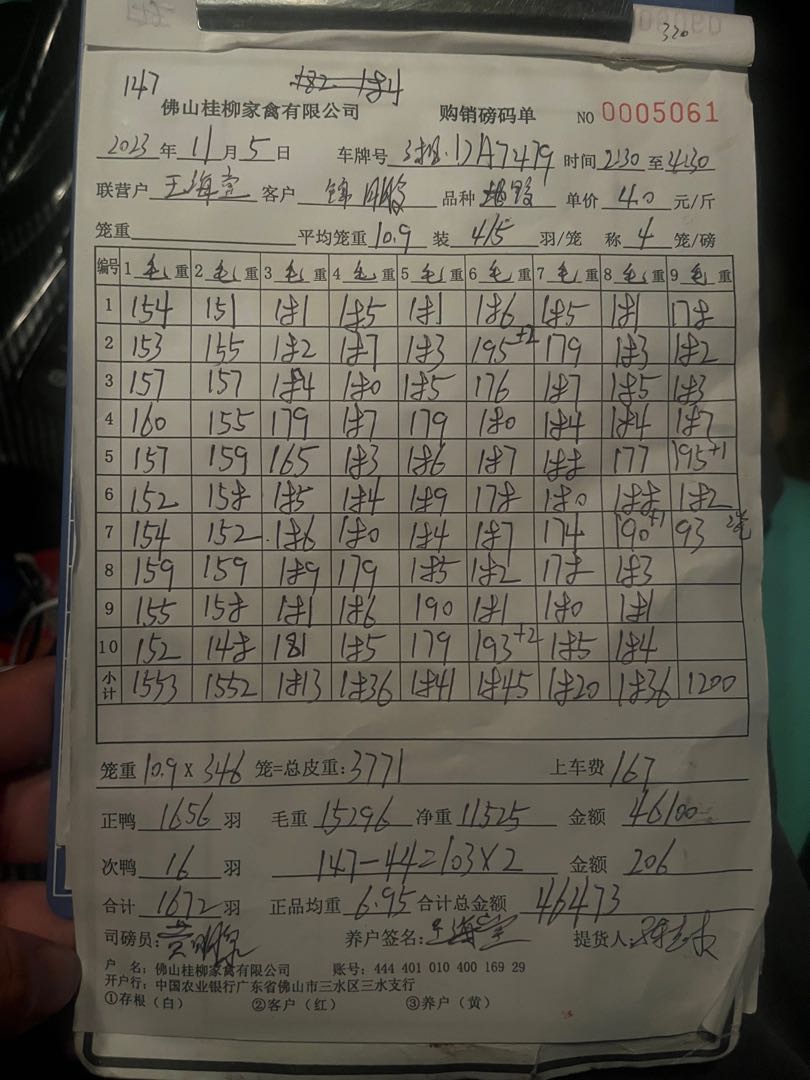 320
147 182-184
佛山桂柳家禽有限公司 购销磅码单 NO 0005061
2023年11月5日 车牌号 17A7479 时间2:30至4:30
联营户 王海堂 客户 锦 品种 单价 4.0 元/斤
笼重 平均笼重10.9 装 4/5 羽/笼 称 4 笼/磅
编号 1毛重 2毛重 3毛重 4毛重 5毛重 6毛重 7毛重 8毛重 9毛重
1 154 151 181 185 181 186 185 181 178
2 153 155 182 187 183 195+2 179 183 182
3 157 157 184 180 185 176 187 185 183
4 160 155 179 187 179 180 184 184 187
5 157 159 165 183 186 187 188 177 195+1
6 152 158 185 184 189 178 180 188 182
7 154 152 186 180 184 187 174 190+1 93 2笼
8 159 159 189 179 185 182 178 183
9 155 158 181 186 190 181 180 181
10 152 148 181 185 179 193+2 185 184
小计 1553 1552 1813 1836 1841 1845 1820 1836 1200
笼重10.9×346笼=总皮重:3771 上车费167
正鸭 1656 羽 毛重 15296 净重 11525 金额 46100
次鸭 16 羽 147-44=103×2 金额 206
合计 1672 羽 正品均重 6.95 合计总金额 46473
司磅员: 养户签名:王海堂 提货人:
户 名:佛山桂柳家禽有限公司 账号:444 401 010 400 169 29
开户行:中国农业银行广东省佛山市三水区三水支行
①存根(白) ②客户(红) ③养户(黄)